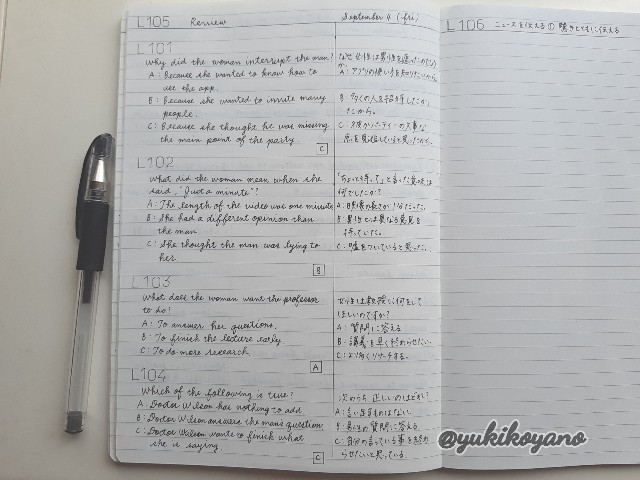 L105 Review September 4 (fri)
L101
Why did the woman interrupt the man?
A: Because she wanted to know how to
use the app.
B: Because she wanted to invite many
people.
C: Because she thought he was missing
the main point of the party.
C
なぜ女性は男性を遮ったのでしょう
か。
A: アプリの使い方を知りたいから。
B: 多くの人を招待したかっ
たから。
C:
L102
What did the woman mean when she
said, "Just a minute"?
A: The length of the video was one minute.
B: She had a different opinion than
the man.
C: She thought the man was lying to
her.
B
「ちょっと待って」と言った
何でしたか？
A: 映像の長さが1分だった。
B: 男性とは異なる意見を
持っていた。
C: 嘘をついていると思った。
L103
What does the woman want the professor
to do?
A: To answer her questions.
B: To finish the lecture early.
C: To do more research.
A
女性は教授に何をして
ほしいのですか？
A: 質問に答える
B: 講義を早く終わらせたい。
C: よりリサーチする。
L104
Which of the following is true?
A: Doctor Wilson has nothing to add.
B: Doctor Wilson answers the man's question.
C: Doctor Wilson wants to finish what
she is saying.
C
次のうち正しいのはどれ？
A: 言い足すものはない。
B: 男性の質問に答える
C: 自分の言っている事を終わ
らせたいと思っている。
L106 ニュースを伝える① 驚きとともに伝える
@yukikoyano